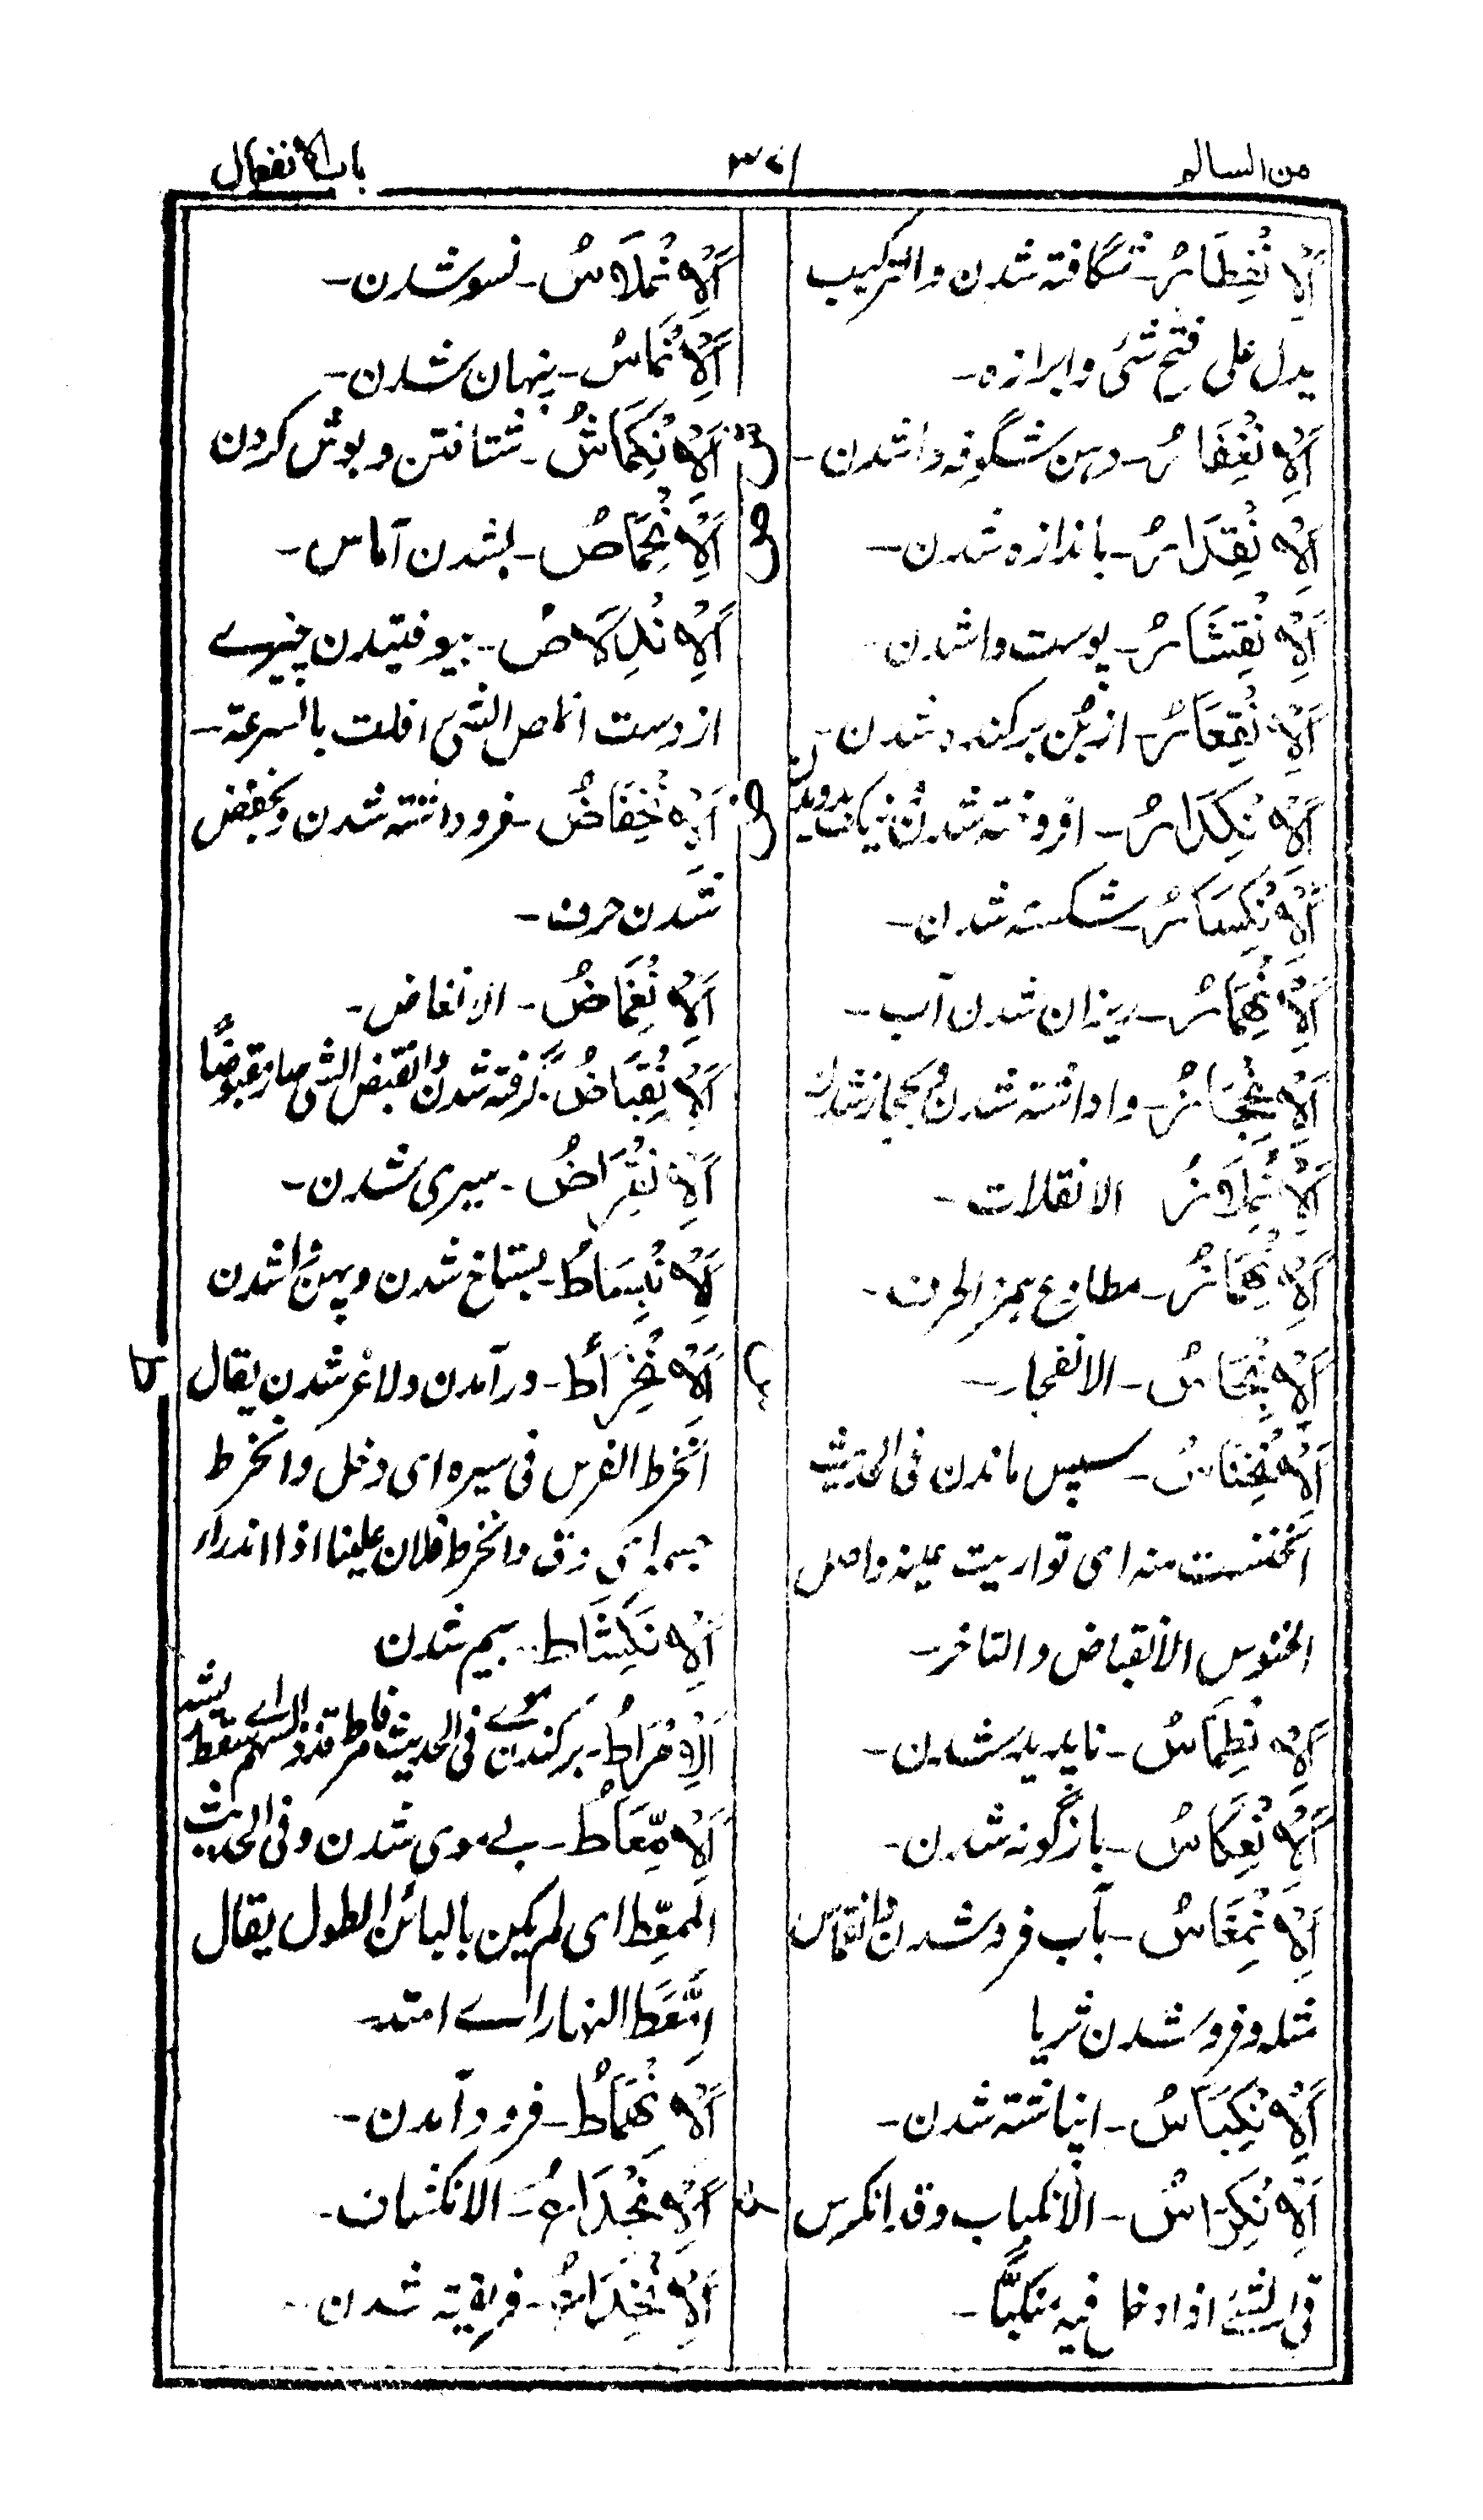 من السالم
٣٤١
باب الانفعال
اَلْاِنْفِطَارُ ـ شگافته شدن والترکیب
یدل علی فتح شیٔ وابرازه ـ
اَلْاِنْفِغَارُ ـ دهن شگوفه واشدن ـ
اَلْاِنْقِدَارُ ـ باندازه شدن ـ
اَلْاِنْقِشَارُ ـ پوست واشدن
اَلْاِنْقِعَارُ ـ از بُن برکنده شدن ـ
اَلْاِنْكِدَارُ ـ
اَلْاِنْكِسَارُ ـ شکسته شدن ـ
اَلْاِنْهِمَارُ ـ ریزان شدن آب ـ
اَلْاِنْحِجَازُ ـ واداشته شدن و بحجاز شدن
اَلْاِنْمِلَازُ الانفلات ـ
اَلْاِنْهِمَازُ ـ مطاوع همز الحرف ـ
اَلْاِنْبِجَاسُ ـ الانفجار ـ
اَلْاِنْخِنَاسُ ـ سپس ماندن فی الحدیث
انخنست منه ای تواریت عنه واصل
الخنوس الانقباض والتاخر ـ
اَلْاِنْطِمَاسُ ـ ناپدید شدن ـ
اَلْاِنْعِكَاسُ ـ بازگونه شدن ـ
اَلْاِنْغِمَاسُ ـ بآب فرو شدن والانقماس
مثله وفرو شدن ثریا
اَلْاِنْكِبَاسُ ـ انباشته شدن ـ
اَلْاِنْكِرَاسُ ـ الانکباب وقد انکرس
فی الشیٔ اذا دخل فیه منکبًّا ـ
اَلْاِنْمِلَاسُ ـ نسو شدن ـ
اَلْاِنِّمَاسُ ـ پنهان شدن ـ
ش اَلْاِنْكِمَاشُ ـ شتافتن و بوش کردن
ص اَلْاِنْحِمَاصُ ـ بشدن آماس ـ
اَلْاِنْدِلَاصُ ـ بیوفتیدن چیزے
از دست انملص الشیٔ افلت بالسرعة ـ
ض اَلْاِنْخِفَاضُ ـ فرو داشته شدن و بخفض
شدن حرف ـ
اَلْاِنْغِمَاضُ ـ الانغاض ـ
اَلْاِنْقِبَاضُ ـ گرفته شدن وانقبض الشی صار مقبوضًا
اَلْاِنْقِرَاضُ ـ سپری شدن ـ
ط
اَلْاِنْبِسَاطُ ـ بستاخ شدن و پهن واشدن
اَلْاِنْخِرَاطُ ـ درآمدن و لاغر شدن یقال
انخرط الفرس فی سیره ای دخل وانخرط
جسمه ای دق وانخرط فلان علینا اذا اندرأ
اَلْاِنْكِشَاطُ ـ شدن
اَلْاِمِّرَاطُ ـ برکندن موے فی الحدیث فامرط قذذ السهم اے سقط ریشه
اَلْاِمِّعَاطُ ـ بے موی شدن وفی الحدیث
الممعّط ای لم یکن بالبائن الطول یقال
اِمَّعَطَ النهار اے امتد ـ
اَلْاِنْهِمَاطُ ـ فرود آمدن ـ
ع اَلْاِنْجِدَاعُ ـ الانکشاف ـ
اَلْاِنْخِدَاعُ ـ فریفته شدن ـ